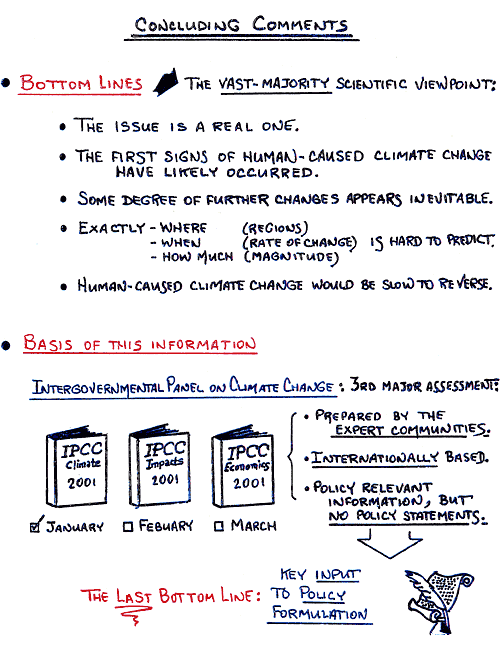 CONCLUDING COMMENTS
• BOTTOM LINES THE VAST-MAJORITY SCIENTIFIC VIEWPOINT:
• THE ISSUE IS A REAL ONE.
• THE FIRST SIGNS OF HUMAN-CAUSED CLIMATE CHANGE
HAVE LIKELY OCCURRED.
• SOME DEGREE OF FURTHER CHANGES APPEARS INEVITABLE.
• EXACTLY - WHERE (REGIONS)
- WHEN (RATE OF CHANGE) IS HARD TO PREDICT.
- HOW MUCH (MAGNITUDE)
• HUMAN-CAUSED CLIMATE CHANGE WOULD BE SLOW TO REVERSE.
• BASIS OF THIS INFORMATION
INTERGOVERNMENTAL PANEL ON CLIMATE CHANGE: 3RD MAJOR ASSESSMENT:
IPCC
Climate
2001
IPCC
Impacts
2001
IPCC
Economics
2001
☑ JANUARY ☐ FEBUARY ☐ MARCH
• PREPARED BY THE
EXPERT COMMUNITIES.
• INTERNATIONALLY BASED.
• POLICY RELEVANT
INFORMATION, BUT
NO POLICY STATEMENTS.
THE LAST BOTTOM LINE:
KEY INPUT
TO POLICY
FORMULATION